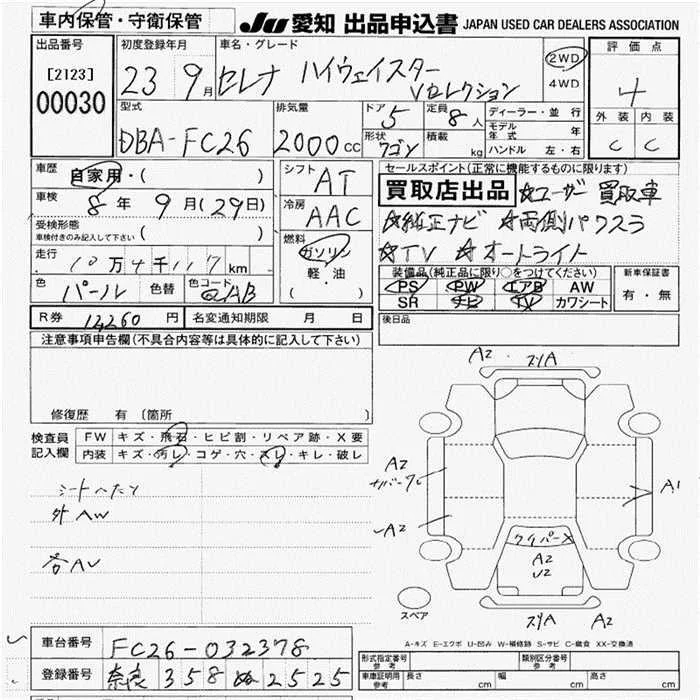 車内保管・守衛保管
JU 愛知 出品申込書 JAPAN USED CAR DEALERS ASSOCIATION
出品番号
[2123]
00030
初度登録年月
23 9月
車名・グレード
セレナ ハイウェイスター
Vセレクション
2WD
4WD
評価点
4
外装 内装
C C
型式
DBA-FC26
排気量
2000cc
ドア
5
形状
ワゴン
定員
8人
積載
kg
ディーラー・並行
モデル年式 年
ハンドル 左・右
車歴
自家用・( )
車検
8年 9月(29日)
受検形態
車検付きのみ記入して下さい ( )
走行
10万4千117km
色
パール
色替
色コード
QAB
シフト
AT
冷房
AAC
燃料
ガソリン
軽・油
( )
セールスポイント(正常に機能するものに限ります)
買取店出品 ☆ユーザー買取車
☆純正ナビ ☆両側パワスラ
☆TV ☆オートライト
装備品(純正品に限り○をつけてください)
PS PW エアB AW
SR ナビ TV カワシート
新車保証書
有・無
R券 12260円
名変通知期限 月 日
後日品
注意事項申告欄(不具合内容等は具体的に記入して下さい)
修復歴 有〔箇所 〕
検査員
記入欄
FW キズ・飛石・ヒビ割・リペア跡・X要
内装 キズ・汚レ・コゲ・穴・スレ・キレ・破レ
シートヘたり
外AW
各AU
A2
スリA
A2
A1
A2
ワイパーX
A2
U2
スペア
スリA
A2
A-キズ E-エクボ U-凹み W-補修跡 S-サビ C-腐食 XX-交換済
車台番号 FC26-032378
登録番号 奈良 358 ぬ 2525
形式指定番号
参考
類別区分番号
参考
車庫証明用
参考
長さ cm
幅 cm
高さ cm